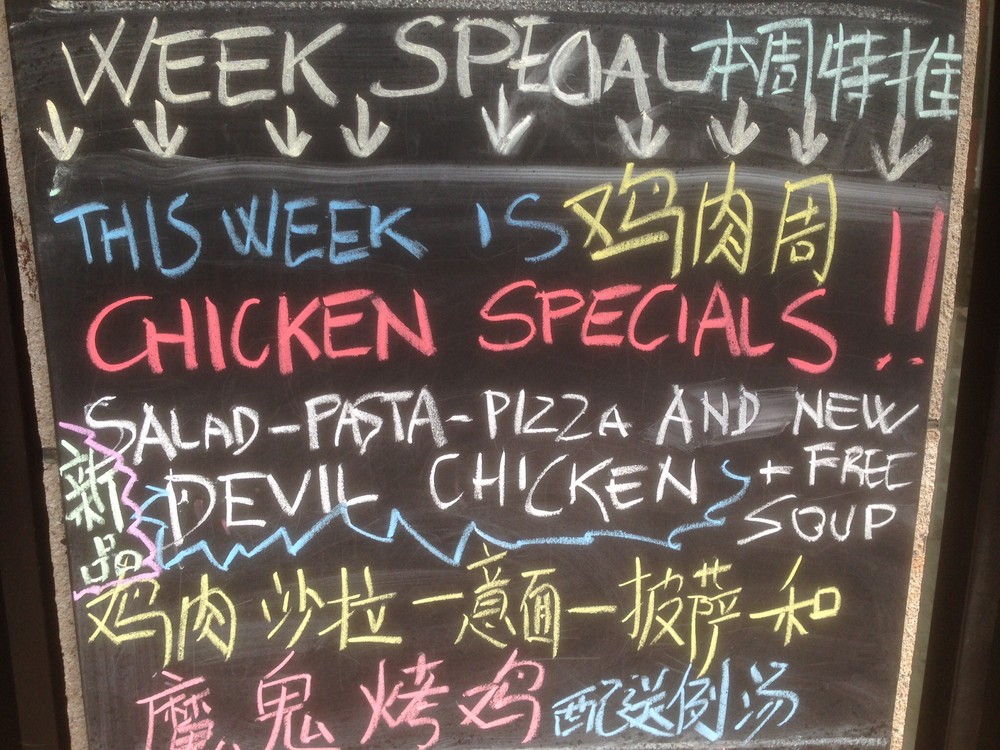 WEEK SPECIAL 本周特推
THIS WEEK IS 鸡肉周!!
CHICKEN SPECIALS
SALAD-PASTA-PIZZA AND NEW
DEVIL CHICKEN + FREE
SOUP
新品
鸡肉沙拉-意面-披萨-和
魔鬼烤鸡 配送例汤